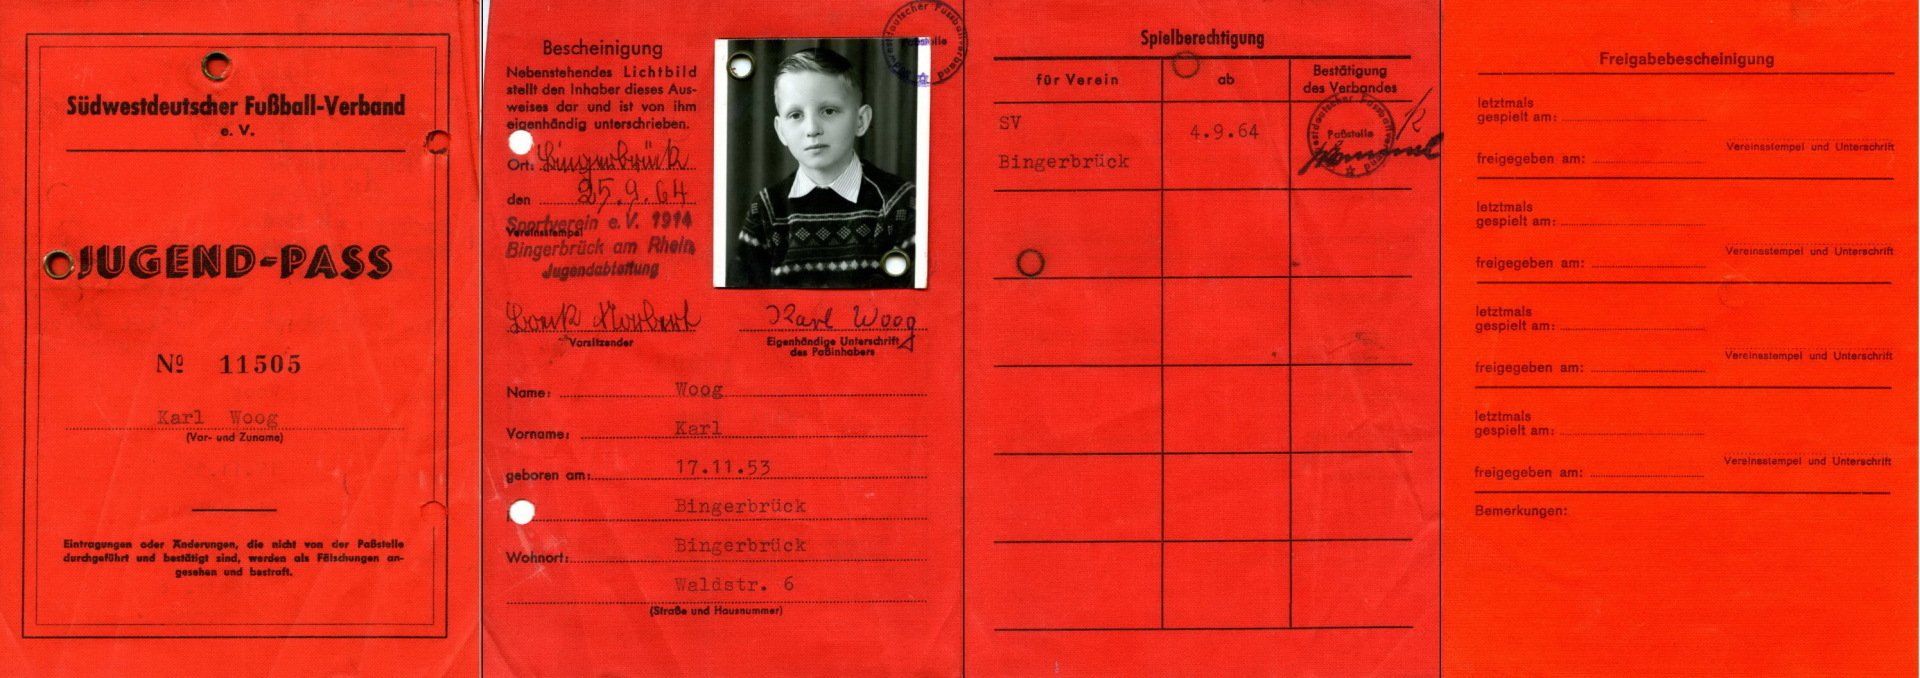 Südwestdeutscher Fußball-Verband
e. V.
JUGEND-PASS
Nº 11505
Karl Woog
(Vor- und Zuname)
Eintragungen oder Änderungen, die nicht von der Paßstelle
durchgeführt und bestätigt sind, werden als Fälschungen an-
gesehen und bestraft.
Bescheinigung
Nebenstehendes Lichtbild
stellt den Inhaber dieses Aus-
weises dar und ist von ihm
eigenhändig unterschrieben.
Ort: Bingerbrück
den 25.9.64
Sportverein e.V. 1914
Vereinsstempel
Bingerbrück am Rhein
Jugendabteilung
Norbert
Vorsitzender
Südwestdeutscher Fussballverband
Paßstelle
Karl Woog
Eigenhändige Unterschrift
des Paßinhabers
Name: Woog
Vorname: Karl
geboren am: 17.11.53
Bingerbrück
Bingerbrück
Wohnort:
Waldstr. 6
(Straße und Hausnummer)
Spielberechtigung
für Verein ab Bestätigung
des Verbandes
SV 4.9.64
Bingerbrück
Südwestdeutscher Fussballverband
Paßstelle
Freigabebescheinigung
letztmals
gespielt am:
Vereinsstempel und Unterschrift
freigegeben am:
letztmals
gespielt am:
Vereinsstempel und Unterschrift
freigegeben am:
letztmals
gespielt am:
Vereinsstempel und Unterschrift
freigegeben am:
letztmals
gespielt am:
Vereinsstempel und Unterschrift
freigegeben am:
Bemerkungen: